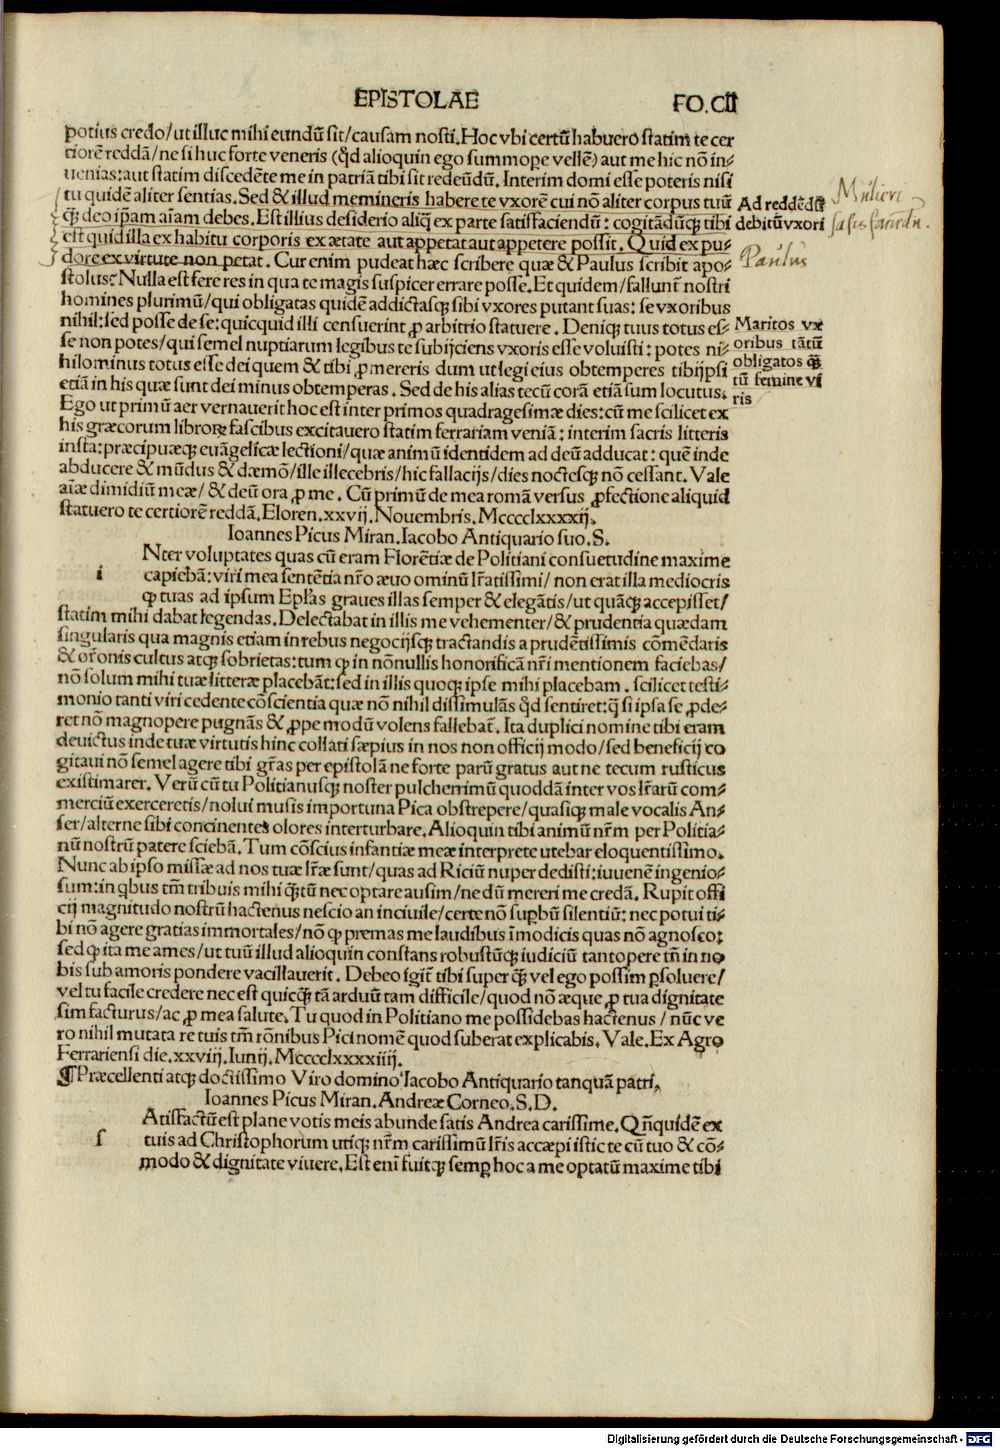 EPISTOLAE FO.CII
potius credo/ut illuc mihi eundū sit/causam nosti. Hoc vbi certū habuero statim te cer
tiorē reddā/ne si huc forte veneris (qđ alioquin ego summope vellē) aut me hic nō in-
uenias: aut statim discedēte me in patriā tibi sit redeūdū. Interim domi esse poteris nisi
tu quidē aliter sentias. Sed & illud memineris habere te vxorē cui nō aliter corpus tuū
q̄ꝫ deo ip̄am aīam debes. Est illius desiderio aliq̄ ex parte satisfaciendū: cogitādūqꝫ tibi
est quid illa ex habitu corporis ex ætate aut appetat aut appetere possit. Quid ex pu-
dore ex virtute non petat. Cur enim pudeat hæc scribere quæ & Paulus scribit apo-
stolus? Nulla est fere res in qua te magis suspicer errare posse. Et quidem/fallunt̄ nostri
homines plurimū/qui obligatas quidē addictasqꝫ sibi vxores putant suas: se vxoribus
nihil: sed posse de se: quicquid illi censuerint ꝓ arbitrio statuere. Deniqꝫ tuus totus es-
se non potes/qui semel nuptiarum legibus te subijciens vxoris esse voluisti: potes ni-
hilominus totus esse dei quem & tibi ꝓmereris dum ut legi eius obtemperes tibijpsi
etiā in his quæ sunt dei minus obtemperas. Sed de his alias tecū corā etiā sum locutus.
Ego ut primū aer vernauerit hoc est inter primos quadragesimæ dies: cū me scilicet ex
his græcorum libroꝝ fascibus excitauero statim ferrariam veniā: interim sacris litteris
insta: præcipuæqꝫ euāgelicæ lectioni/quæ animū identidem ad deū adducat: quē inde
abducere & mūdus & dæmō/ille illecebris/hic fallacijs/dies noctesqꝫ nō cessant. Vale
aīæ dimidiū meæ/& deū ora ꝓ me. Cū primū de mea romā versus ꝓfectione aliquid
statuero te certiorē reddā. Eloren. xxvij. Nouembris. Mcccclxxxxij.
Ad reddēdū
debitū vxori
Mulieri
satisfaciēdū.
Paulus
Maritos vx
oribus tātū
obligatos q̄ꝫ
tū femine vi
ris
Ioannes Picus Miran. Iacobo Antiquario suo. S.
i
Nter voluptates quas cū eram Florētiæ de Politiani consuetudine maxime
capiebā: viri mea sentētia nr̄o æuo ominū lr̄atissimi/non erat illa mediocris
qꝙ tuas ad ipsum Epl̄as graues illas semper & elegātis/ut quāqꝫ accepisset/
statim mihi dabat legendas. Delectabat in illis me vehementer/& prudentia quædam
singularis qua magnis etiam in rebus negocijsqꝫ tractandis a prudētissimis cōmēdaris
& or̄onis cultus atqꝫ sobrietas: tum ꝙ in nōnullis honorificā nr̄i mentionem faciebas/
nō solum mihi tuæ litteræ placebāt: sed in illis quoqꝫ ipse mihi placebam. scilicet testi-
monio tanti viri cedente cōscientia quæ nō nihil dissimulās qđ sentiret: q̄ si ipsa se ꝓde-
ret nō magnopere pugnās & ꝓpe modū volens fallebat̄. Ita duplici nomine tibi eram
deuictus inde tuæ virtutis hinc collati sæpius in nos non officij modo/sed beneficij co
gitaui nō semel agere tibi gr̄as per epistolā ne forte parū gratus aut ne tecum rusticus
existimarer. Verū cū tu Politianusqꝫ noster pulcherrimū quoddā inter vos lr̄arū com-
merciū exerceretis/nolui musis importuna Pica obstrepere/quasiqꝫ male vocalis An-
ser/alterne sibi concinentes olores interturbare. Alioquin tibi animū nr̄m per Politia-
nū nostrū patere sciebā. Tum cōscius infantiæ meæ interprete utebar eloquentissimo.
Nunc ab ipso missæ ad nos tuæ lr̄æ sunt/quas ad Riciū nuper dedisti: iuuenē ingenio-
sum: in q̄bus tm̄ tribuis mihi q̄ꝫtū nec optare ausim/ne dū mereri me credā. Rupit offi
cij magnitudo nostrū hactenus nescio an inciuile/certe nō supbū silentiū: nec potui ti-
bi nō agere gratias immortales/nō ꝙ premas me laudibus īmodicis quas nō agnosco:
sed ꝙ ita me ames/ut tuū illud alioquin constans robustūqꝫ iudiciū tantopere tm̄ in no
bis sub amoris pondere vacillauerit. Debeo igit̄ tibi super q̄ꝫ vel ego possim ꝑsoluere/
vel tu facile credere nec est quicqꝫ tā arduū tam difficile/quod nō æque ꝓ tua dignitate
sim facturus/ac ꝓ mea salute. Tu quod in Politiano me possidebas hactenus/nūc ve
ro nihil mutata re tuis tm̄ rōnibus Pici nomē quod suberat explicabis. Vale. Ex Agro
Ferrariensi die. xxviij. Iunij. Mcccclxxxxiiij.
¶ Præcellenti atqꝫ doctissimo Viro domino Iacobo Antiquario tanquā patri.
Ioannes Picus Miran. Andreæ Corneo. S. D.
s
Atisfactū est plane votis meis abunde satis Andrea carissime. Qn̄quidē ex
tuis ad Christophorum utiqꝫ nr̄m carissimū lr̄is accæpi istic te cū tuo & cō-
modo & dignitate viuere. Est enī fuitqꝫ semꝑ hoc a me optatū maxime tibi
Digitalisierung gefördert durch die Deutsche Forschungsgemeinschaft - DFG